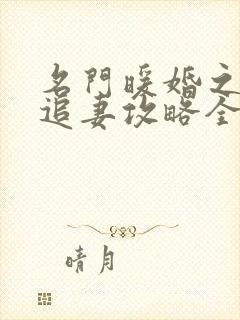 名門暖婚之
追妻攻略全
晴月